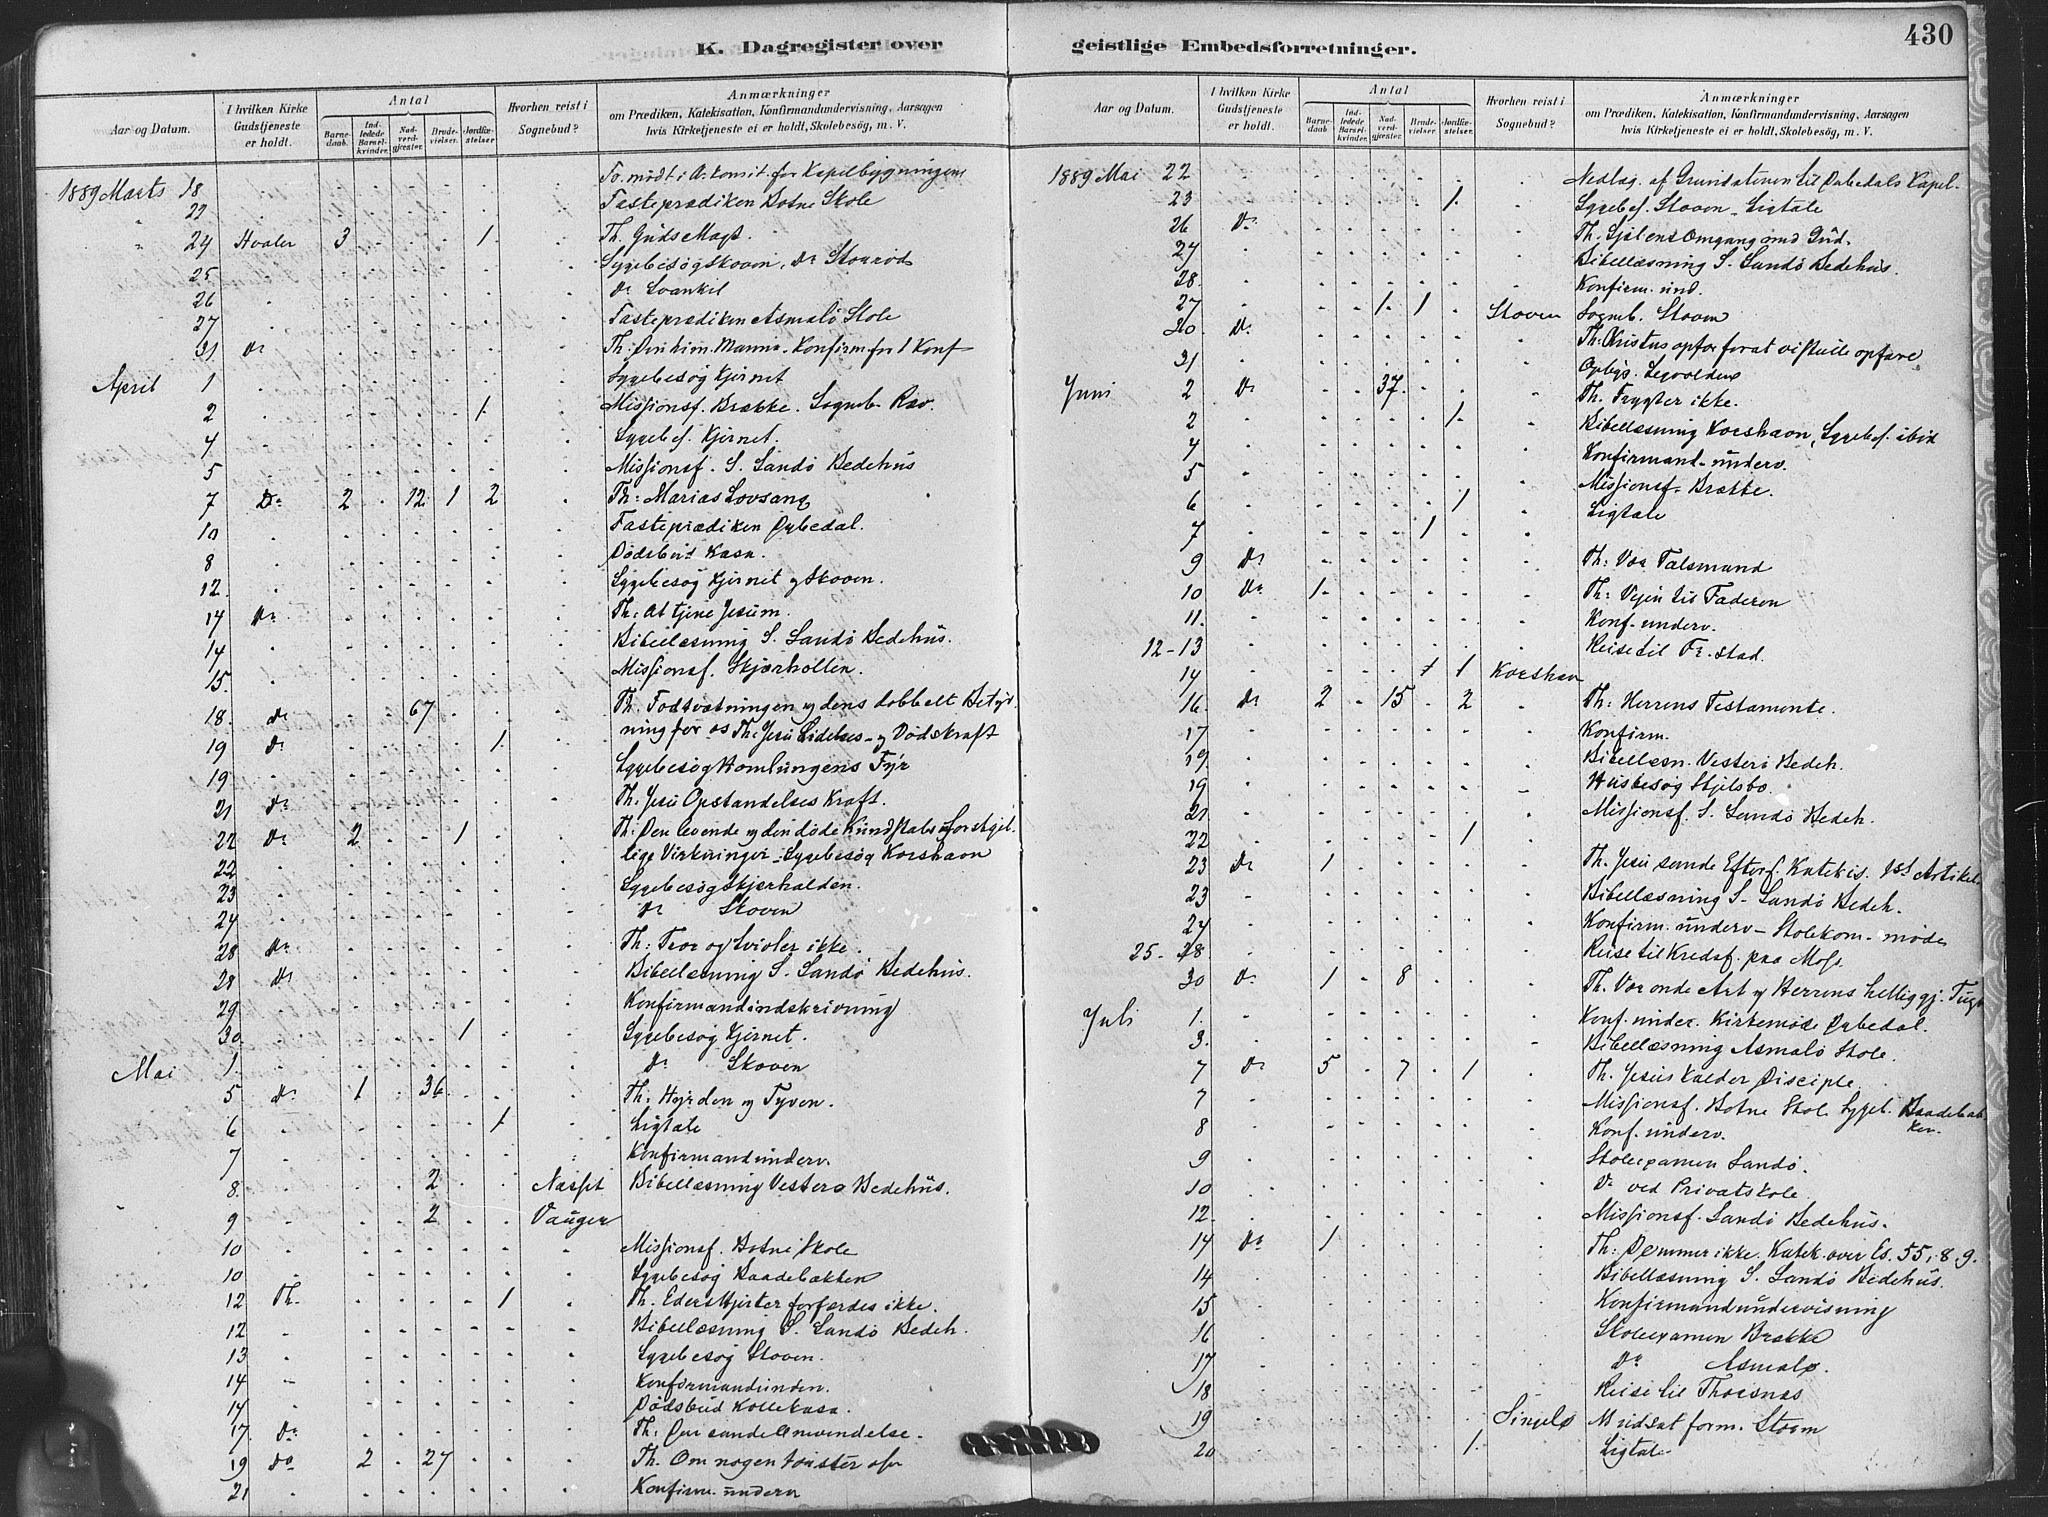 430
K. Dagregister over geistlige Embedsforretninger.
Aar og Datum.
I hvilken Kirke Gudstjeneste er holdt.
Antal
Barnedaab.
Indledede Barselkvinder.
Nadverdgjester.
Brudevielser.
Jordfæstelser
Hvorhen reist i Sognebud?
Anmærkninger
om Prædiken, Katekisation, Konfirmandundervisning, Aarsagen
hvis Kirketjeneste ei er holdt, Skolebesög, m. V.
1889 Marts 18 for Kapelbygningen
Fasteprædiken Botne Skole
24 Hvaler 3 1 Th. Guds Magt.
25 Sygebesøg Skoven, Do
26 Do
27 Fasteprædiken Asmalö Skole
31 Do Th: Konfirm for 1 Konf
April 1 Sygebesøg Kjirnet
2 1 Missionsf. Brække. Sogneb.
4 Sygebes. Kjirnet.
5 Missionsf. S. Sandö Bedehus
7 Do 2 12 1 2 Th: Marias Lovsang
10 Fasteprædiken Dybedal.
8 Dödsbud
12 Sygebesøg Kjirnet og Skoven.
14 Do Th: At tjene Jesum.
14 Bibellæsning S. Sandö Bedehus.
15 Missionsf. Skjærhollen.
18 Do 67 Th. Fodtvætningen og dens dobbelt Betyd
ning for os
19 Do 1 Th: Jesu Lidelses- og Dödskraft
19 Sygebesøg Homlungens Fyr
21 Do Th. Jesu Opstandelses Kraft.
22 Do 2 1 Th: Den levende og den döde Kundskabs forskjel
lige Virkninger
22 Sygebesøg Korshavn
23 Sygebesøg Skjærhalden.
24 Do Skoven
28 Do Th: Tror og tvivler ikke.
28 Do Bibellæsning S. Sandö Bedehus.
29 Konfirmandindskrivning
30 1 Sygebesøg Kjirnet.
Mai 1 Do Skoven
5 Do 1 36 Th: Hyrden og Tyven.
6 1 Ligtale
7 Konfirmandunderv.
8. 2 Bibellæsning Vesterø Bedehus.
9 2 Vauger
10 Missionsf. Botne Skole
10 Sygebesøg Baadebakken
12 Th. 1 Th. Eders Hjerter forfærdes ikke.
12 Bibellæsning S. Sandö Bedeh.
13 Sygebesøg Skoven.
14 Konfirmandunderv.
14 Dödsbud
17 Do Th: Den sande Omvendelse.
19 Do 2 27 Th. Om nogen törster osv
21 Konfirm. underv
Aar og Datum.
I hvilken Kirke Gudstjeneste er holdt.
Antal
Barnedaab.
Indledede Barselkvinder.
Nadverdgjester.
Brudevielser.
Jordfæstelser.
Hvorhen reist i Sognebud?
Anmærkninger
om Prædiken, Katekisation, Konfirmandundervisning, Aarsagen
hvis Kirketjeneste ei er holdt, Skolebesög, m. V.
1889 Mai 22 Nedlæg. af Grundstenen til Dybedals Kapel.
23 1 Sygebes. Skoven - Ligtale
26 Do Th. Sjælens Omgang med Gud.
27 Bibellæsning S. Sandö Bedehus.
28. Konfirm. und.
27 1 1 Skoven Sogneb. Skoven
30. Do Th: Kristus opfor forat vi skulle opfare
31
Juni 2 Do 37 Th. Frygter ikke.
2 1 Bibellæsning Korshavn, Sygebes. ibid
4 Konfirmand-underv.
5 Missionsf. Brække.
6 1 Ligtale
7 1
9 Do Th: Vor Talsmand
10 Do 1 Th: Vejen til Faderen
11. Konf. underv.
12-13 Reise til Fr.stad.
14 1 1 Korshavn
16 Do 2 15 2 Th: Herrens Testamente.
17 Konfirm.
19. Bibellæsn. Vesterö Bedeh.
19 Husbesøg Skjelsbo.
21 Missionsf. S. Sandö Bedeh.
22 1
23 Do 1 Th. Jesu sande Efterf. Katekis. 1st Artikel.
23 Bibellæsning S. Sandö Bedeh.
24 Konfirm. underv - Skolekom-möde
25-28 Reise til Kredsf. paa Moss.
30 Do 1 8 Th. Vor onde Art og Herrens helliggj. Tugt
Juli 1. Konf. under. Kirkemöde Dybedal.
3. Bibellæsning Asmalö Skole.
7 Do 5 7 1 Th. Jesus kalder Disciple.
7 Missionsf. Botne Skol. Sygeb. Baadebakken
8 Konf. underv.
9 Skoleexamen Sandö.
10 Do ved Privatskole
12. Missionsf. Sandö Bedehus.
14 Do 1 Th: Dömmer ikke. Katek. over Es. 55, 8. 9.
14 Bibellæsning S. Sandö Bedehus.
15 Konfirmandundervisning
16 Skoleexamen Brække
17 Do Asmalø.
18 Reise til Thorsnæs
19 Singelø form. Storm
20 1. Ligtale